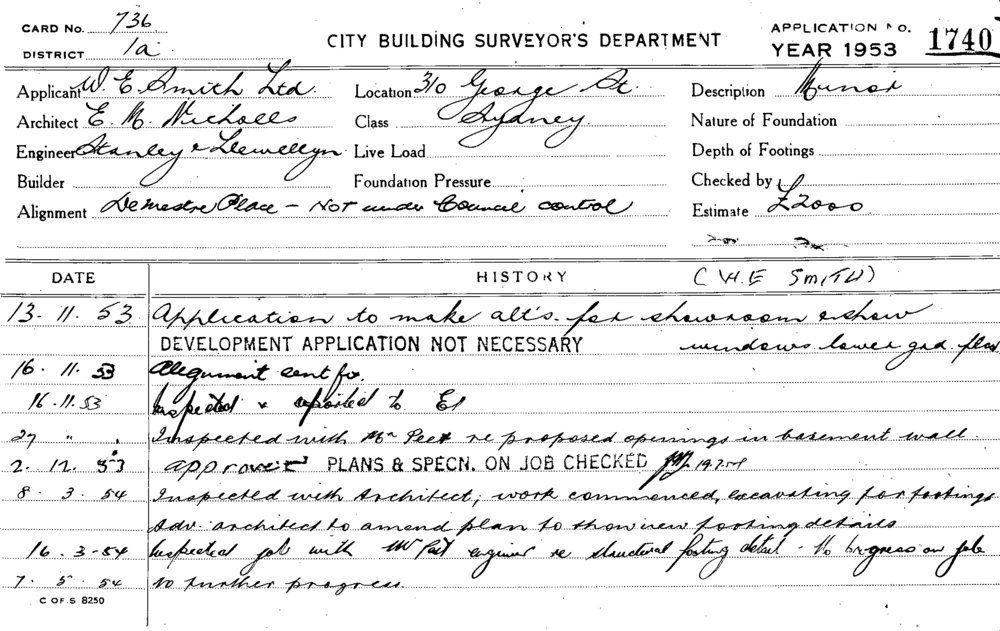 CARD No. 736
DISTRICT 1a
CITY BUILDING SURVEYOR'S DEPARTMENT
APPLICATION No. 1740
YEAR 1953
Applicant W. E. Smith Ltd.
Location 310 George St.
Description Minor
Architect E. M. Nicholls
Class Sydney.
Nature of Foundation
Engineer Stanley & Llewellyn
Live Load
Depth of Footings
Builder
Foundation Pressure
Checked by
Alignment Demestre Place - Not under Council control
Estimate £2000
DATE HISTORY (W.E SMITH)
13. 11. 53 Application to make alt's. for showroom & show
DEVELOPMENT APPLICATION NOT NECESSARY windows lower grd. floor
16. 11. 53 Alignment sent for.
16.11.53 Inspected & reported to
27 " " Inspected with Mr Peet re proposed openings in basement wall.
2. 12. 53 approved PLANS & SPECN. ON JOB CHECKED
8. 3. 54 Inspected with Architect, work commenced, excavating for footings
Adv. architect to amend plan to show new footing details
16. 3-54 Inspected job with Mr engineer re structural footing detail - No progress on job
7. 5. 54 No further progress.
C OF S 8250